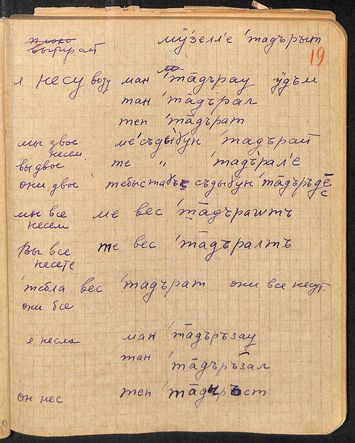 плохо
вытирает мӯ'зелл'е 'тадъръıт
19
я несу воду ман 'та̄дърау ӯдъм
тан 'та̄дърал
теп 'та̄дърат
мы двое несем ме'съдыбун 'тадърай
вы двое те " 'тадърал'е
они двое
мы все несем ме вес 'та̄дърашть
Вы все несете те вес 'та̄дъралть
вес 'тадърат они все несут
они все
я несла ман 'та̄дъръзау
тан 'та̄дъръзал
он нес теп